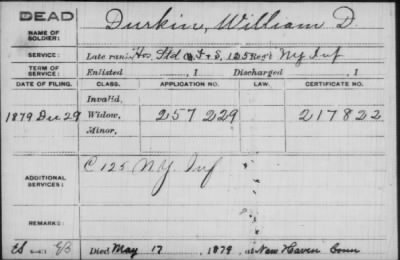 DEAD
NAME OF SOLDIER: Durkin, William D.
SERVICE: Late rank, Hos. Std Co. F+S, 125 Reg't NY Inf
TERM OF SERVICE: Enlisted , 1 Discharged , 1
DATE OF FILING. CLASS. APPLICATION NO. LAW. CERTIFICATE NO.
Invalid,
1879 Dec 29 Widow, 257229 217822
Minor,
ADDITIONAL SERVICES: C 125 N.Y. Inf
REMARKS:
Died May 17, 1879, at New Haven Conn